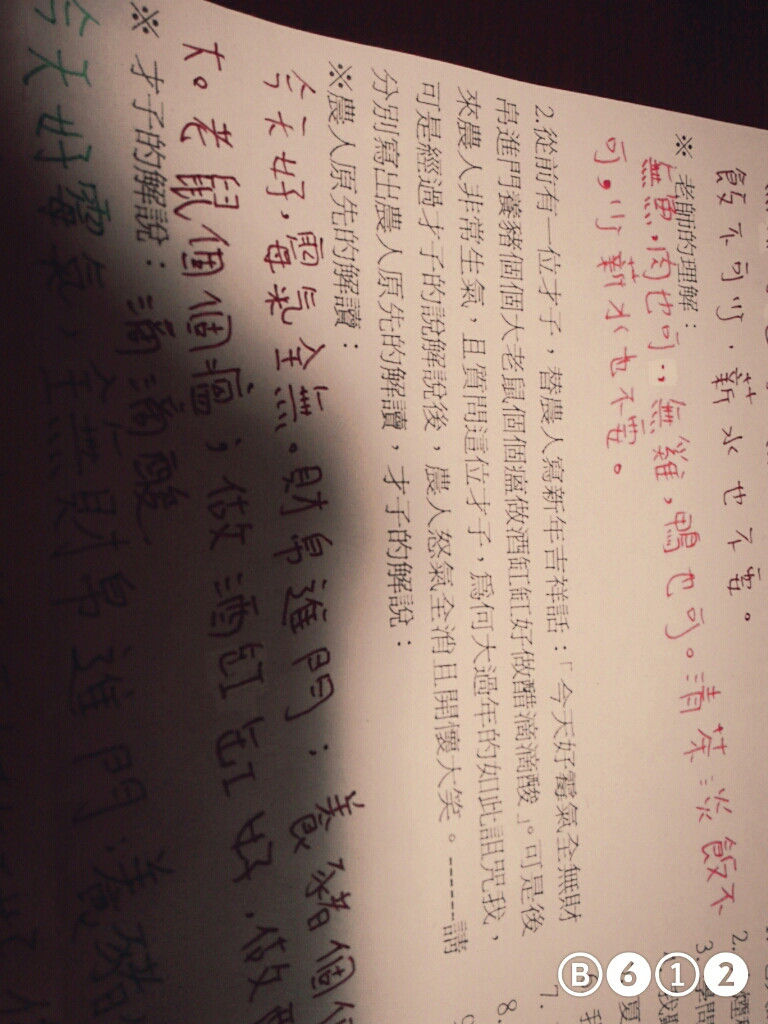 飯不可少．薪水也不要。
※ 老師的理解：
無魚，肉也可．，無雞，鴨也可。清茶淡飯不
可，少薪水也不要。
2.從前有一位才子，替農人寫新年吉祥話：「今天好霉氣全無財
帛進門養豬個個大老鼠個個瘟做酒缸缸好做醋滴滴酸」。可是後
來農人非常生氣，且質問這位才子，為何大過年的如此詛咒我，
可是經過才子的說解說後，農人怒氣全消且開懷大笑。------請
分別寫出農人原先的解讀，才子的解說：
※農人原先的解讀：
今天好，霉氣全無。財帛進門：養豬個個
大。老鼠個個瘟；做酒缸缸好．做
滴滴酸
※ 才子的解說：
今天好霉氣，全無財帛進門：養豬
2.
3.
6.
7.
8.
B612